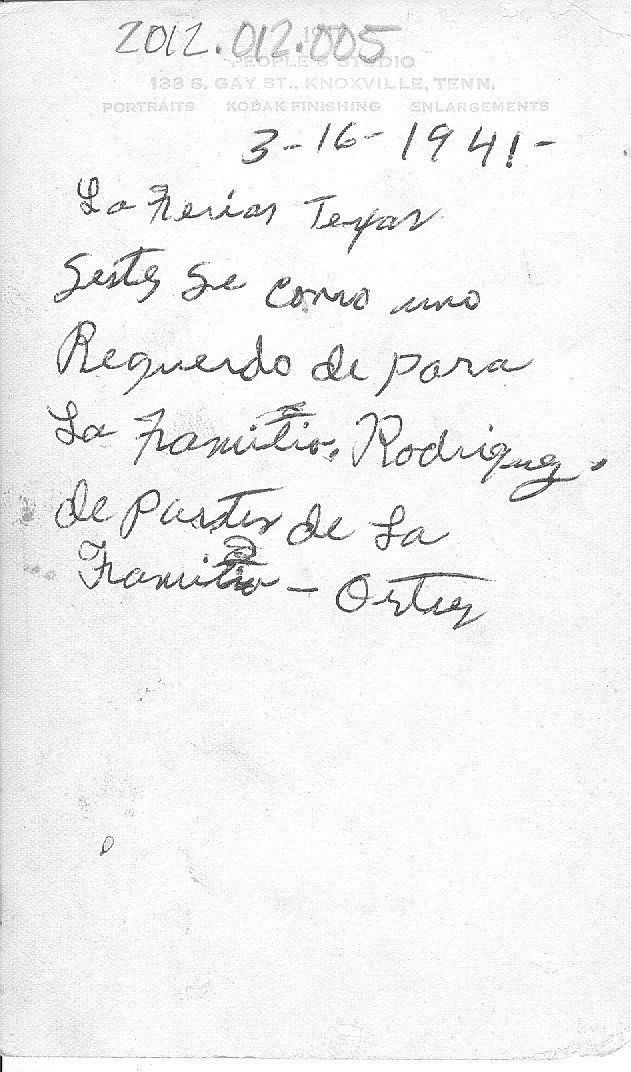 2012.012.005
PEOPLE'S STUDIO
133 S. GAY ST., KNOXVILLE, TENN.
PORTRAITS KODAK FINISHING ENLARGEMENTS
3-16-1941-
La Ferias Texas
Se como uno
Requerdo de para
La Familio. Rodriguez.
de partes de La
Familio - Ortiz